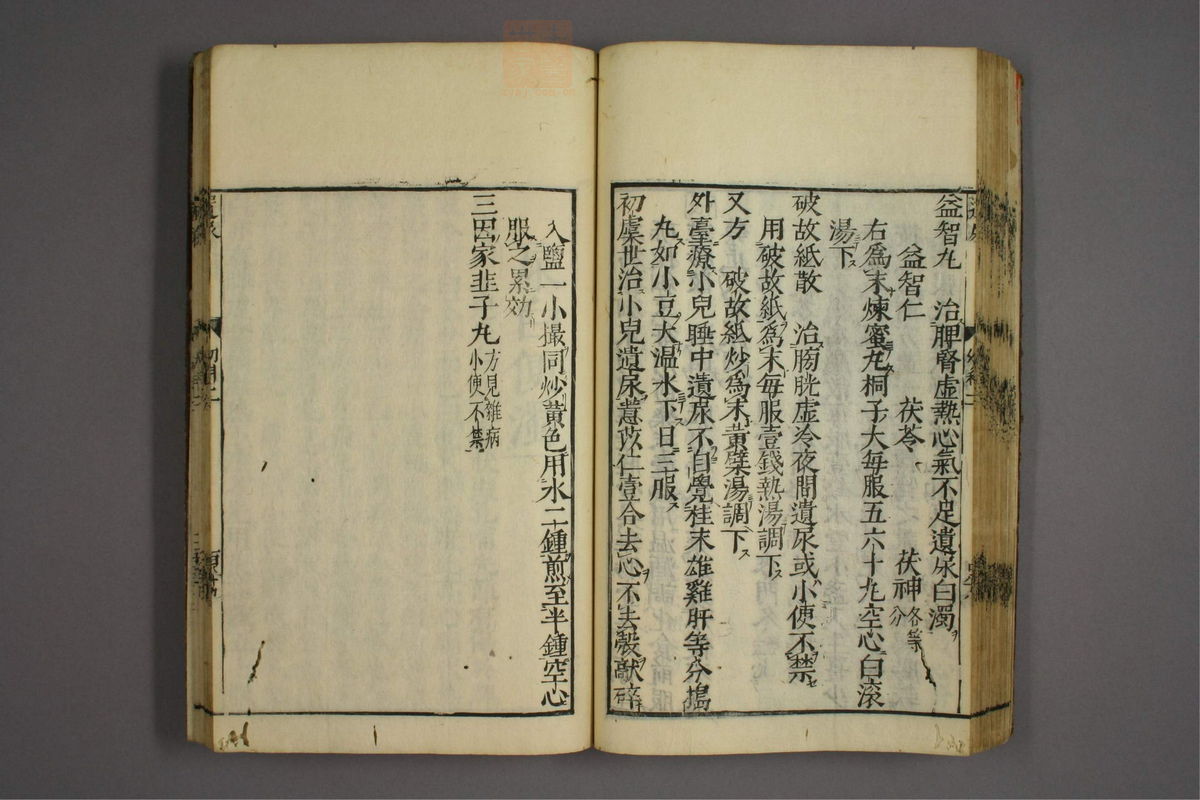 益智丸　治脾腎虛熱心氣不足遺尿白濁ヲ
益智仁　茯苓　茯神各等分
右爲末煉蜜丸桐子大每服五六十丸空心白滾
湯下ス
破故紙散　治膀胱虛冷夜間遺尿或小便不禁
用破故紙爲末每服壹錢熱湯調下ス
又方　破故紙炒爲末黃蘗湯調下ス
外臺療小兒睡中遺尿不自覺桂末雄雞肝等分搗
丸如小豆大溫水下日三服ス
初虞世治小兒遺尿薏苡仁壹合去心不去殼敲碎
入鹽一小撮同炒黃色用水二鍾煎至半鍾空心
服之累効
三因家韭子丸方見雜病小便不禁